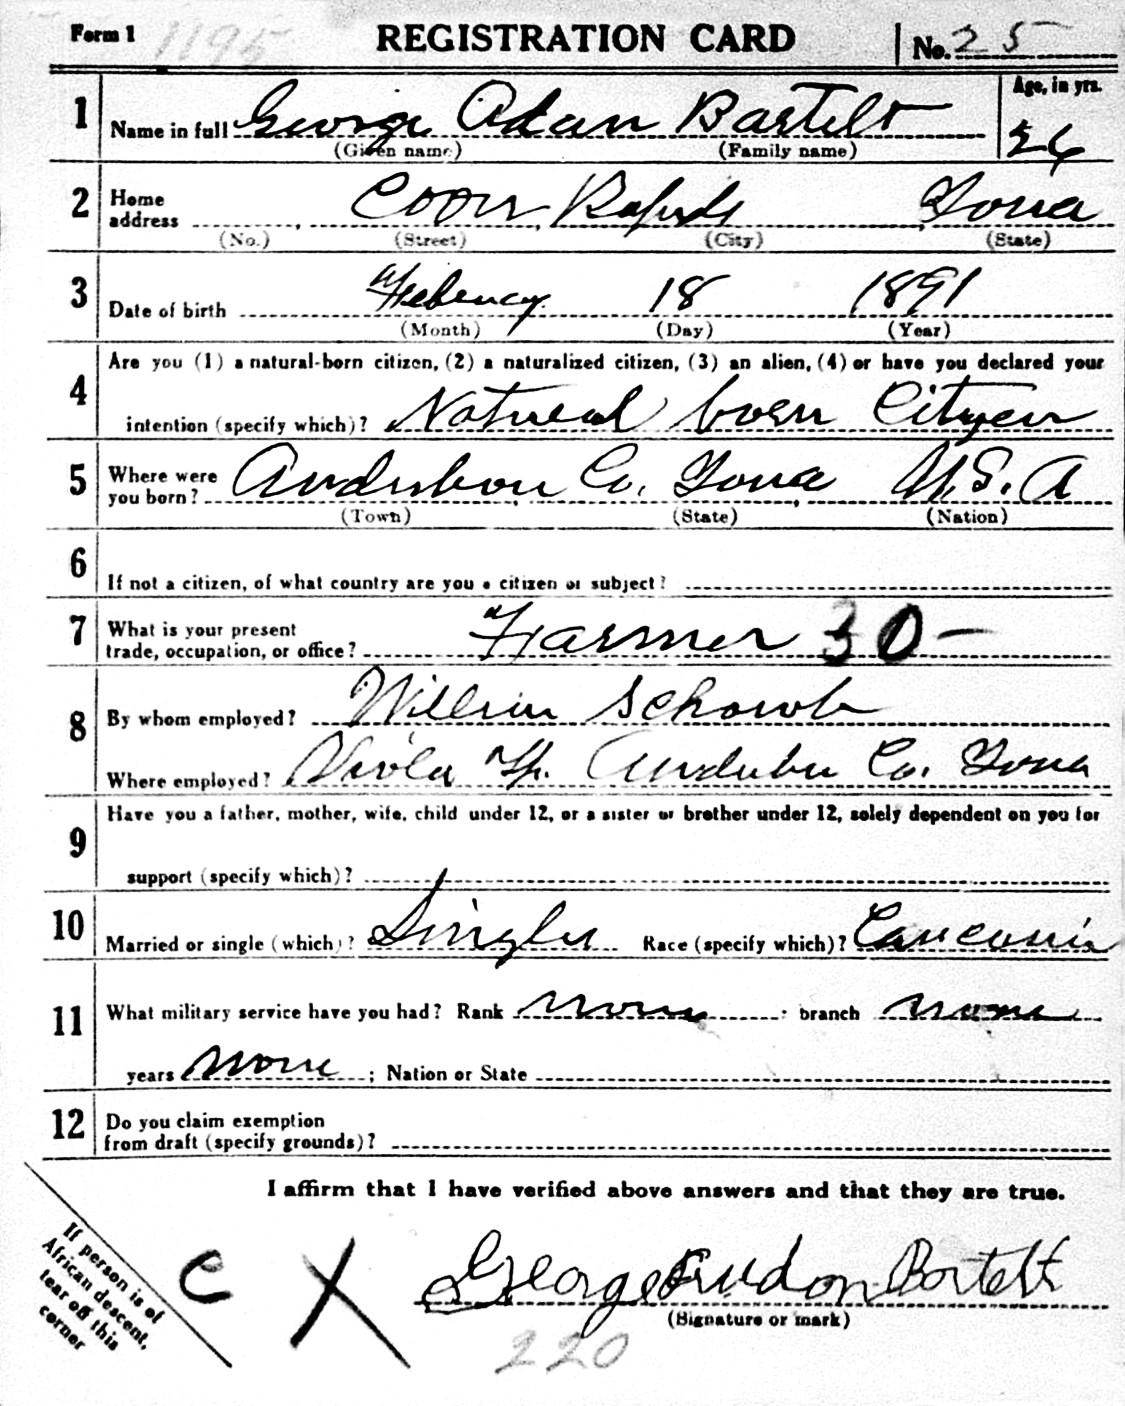 Form 1 1195 REGISTRATION CARD No. 25
1 Name in full George Adam Bartelt Age, in yrs. 26
(Given name) (Family name)
2 Home address Coon Rapids Iowa
(No.) (Street) (City) (State)
3 Date of birth February 18 1891
(Month) (Day) (Year)
4 Are you (1) a natural-born citizen, (2) a naturalized citizen, (3) an alien, (4) or have you declared your
intention (specify which)? Natural born Citizen
5 Where were you born? Audubon Co. Iowa U.S.A
(Town) (State) (Nation)
6 If not a citizen, of what country are you a citizen or subject?
7 What is your present trade, occupation, or office? Farmer 30-
8 By whom employed?
Where employed? Viola Tp. Audubon Co. Iowa
9 Have you a father, mother, wife, child under 12, or a sister or brother under 12, solely dependent on you for
support (specify which)?
10 Married or single (which)? Single Race (specify which)? Caucasian
11 What military service have you had? Rank none ; branch none
years none ; Nation or State
12 Do you claim exemption from draft (specify grounds)?
I affirm that I have verified above answers and that they are true.
If person is of
African descent,
tear off this
corner
C X George Bartelt
(Signature or mark)
220